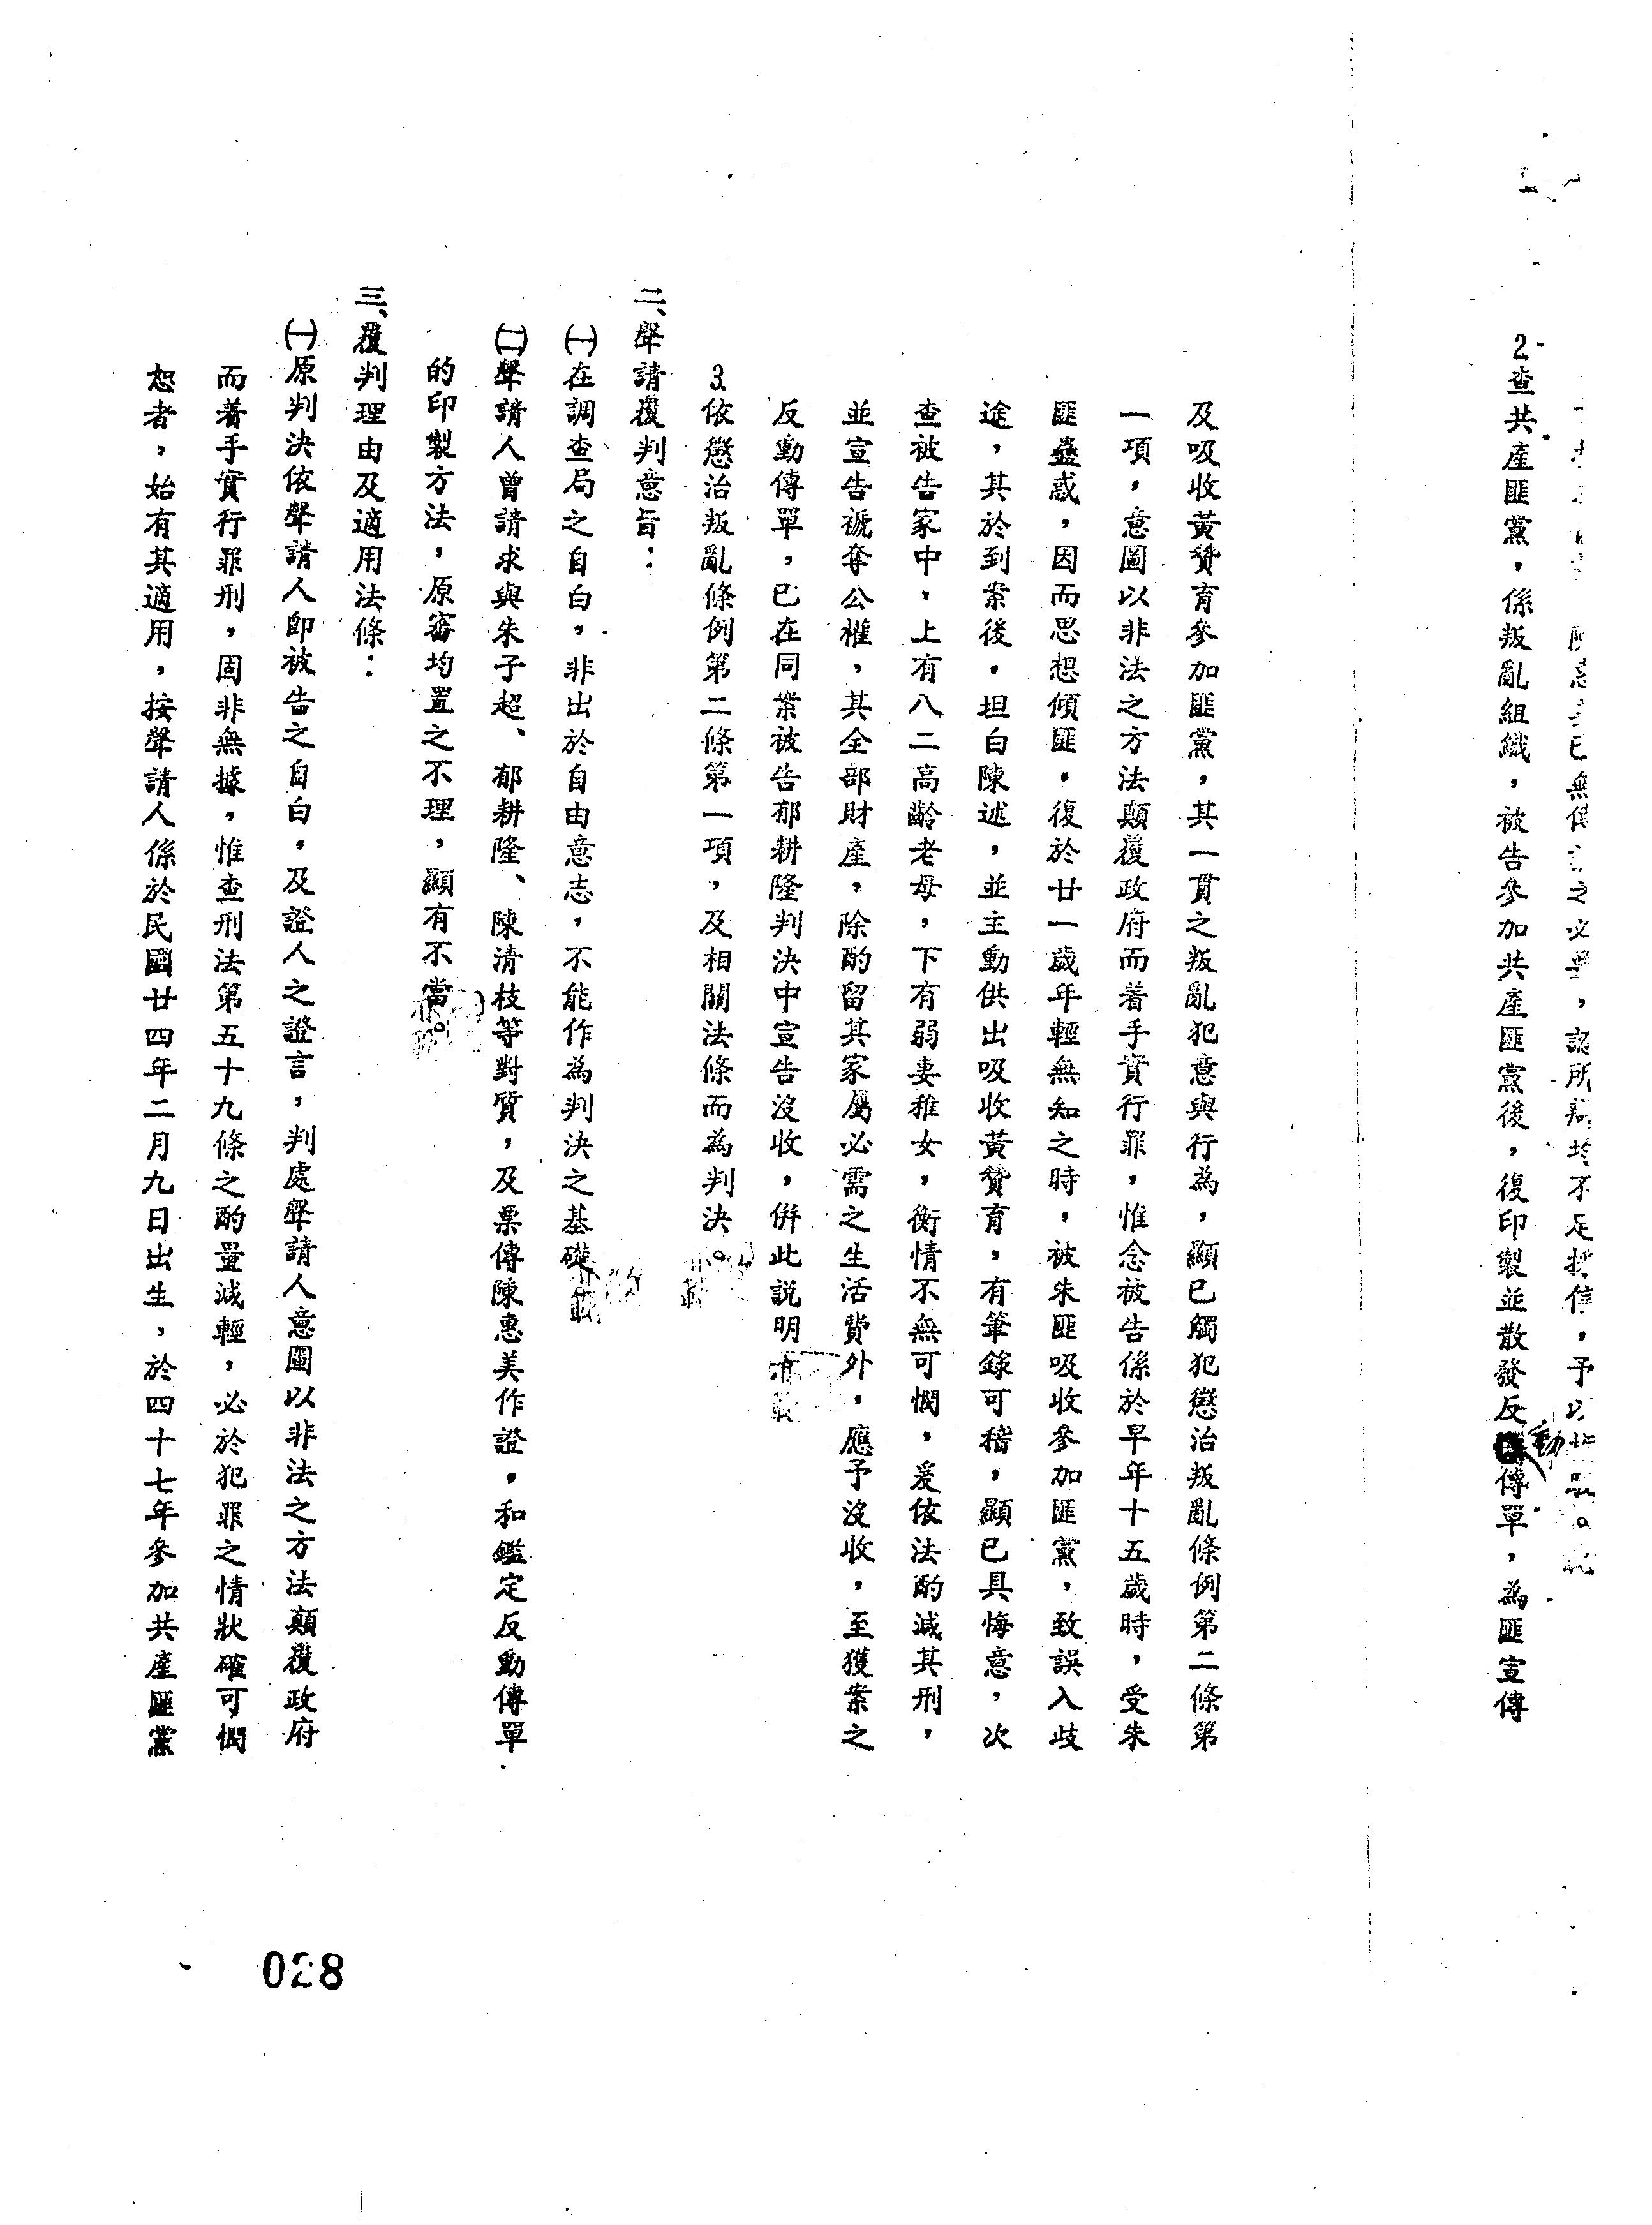 已無傳訊之必要，認所辯均不足採信，予以
2.查共產匪黨，係叛亂組織，被告參加共產匪黨後，復印製並散發反動傳單，為匪宣傳
及吸收黃贊育參加匪黨，其一貫之叛亂犯意與行為，顯已觸犯懲治叛亂條例第二條第
一項，意圖以非法之方法顛覆政府而着手實行罪，惟念被告係於早年十五歲時，受朱
匪蠱惑，因而思想傾匪，復於廿一歲年輕無知之時，被朱匪吸收參加匪黨，致誤入歧
途，其於到案後，坦白陳述，並主動供出吸收黃贊育，有筆錄可稽，顯已具悔意，次
查被告家中，上有八二高齡老母，下有弱妻稚女，衡情不無可憫，爰依法酌減其刑，
並宣告褫奪公權，其全部財產，除酌留其家屬必需之生活費外，應予沒收，至獲案之
反動傳單，已在同案被告郁耕隆判決中宣告沒收，併此說明
3.依懲治叛亂條例第二條第一項，及相關法條而為判決。
二、聲請覆判意旨：
㈠在調查局之自白，非出於自由意志，不能作為判決之基礎
㈡聲請人曾請求與朱子超、郁耕隆、陳清枝等對質，及票傳陳惠美作證，和鑑定反動傳單
的印製方法，原審均置之不理，顯有不當。
三、覆判理由及適用法條：
㈠原判決依聲請人即被告之自白，及證人之證言，判處聲請人意圖以非法之方法顛覆政府
而着手實行罪刑，固非無據，惟查刑法第五十九條之酌量減輕，必於犯罪之情狀確可憫
恕者，始有其適用，按聲請人係於民國廿四年二月九日出生，於四十七年參加共產匪黨
028